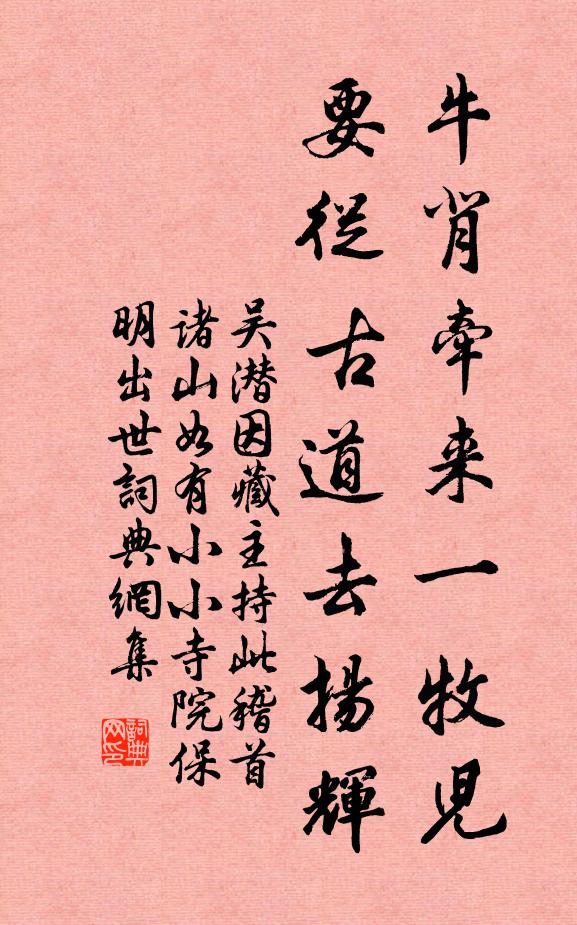 牛背牵来一牧児
要從古道去揚輝
吴潜因藏主持此稽首
诸山如有小小寺院保
明出世詞典網集
詞典网印